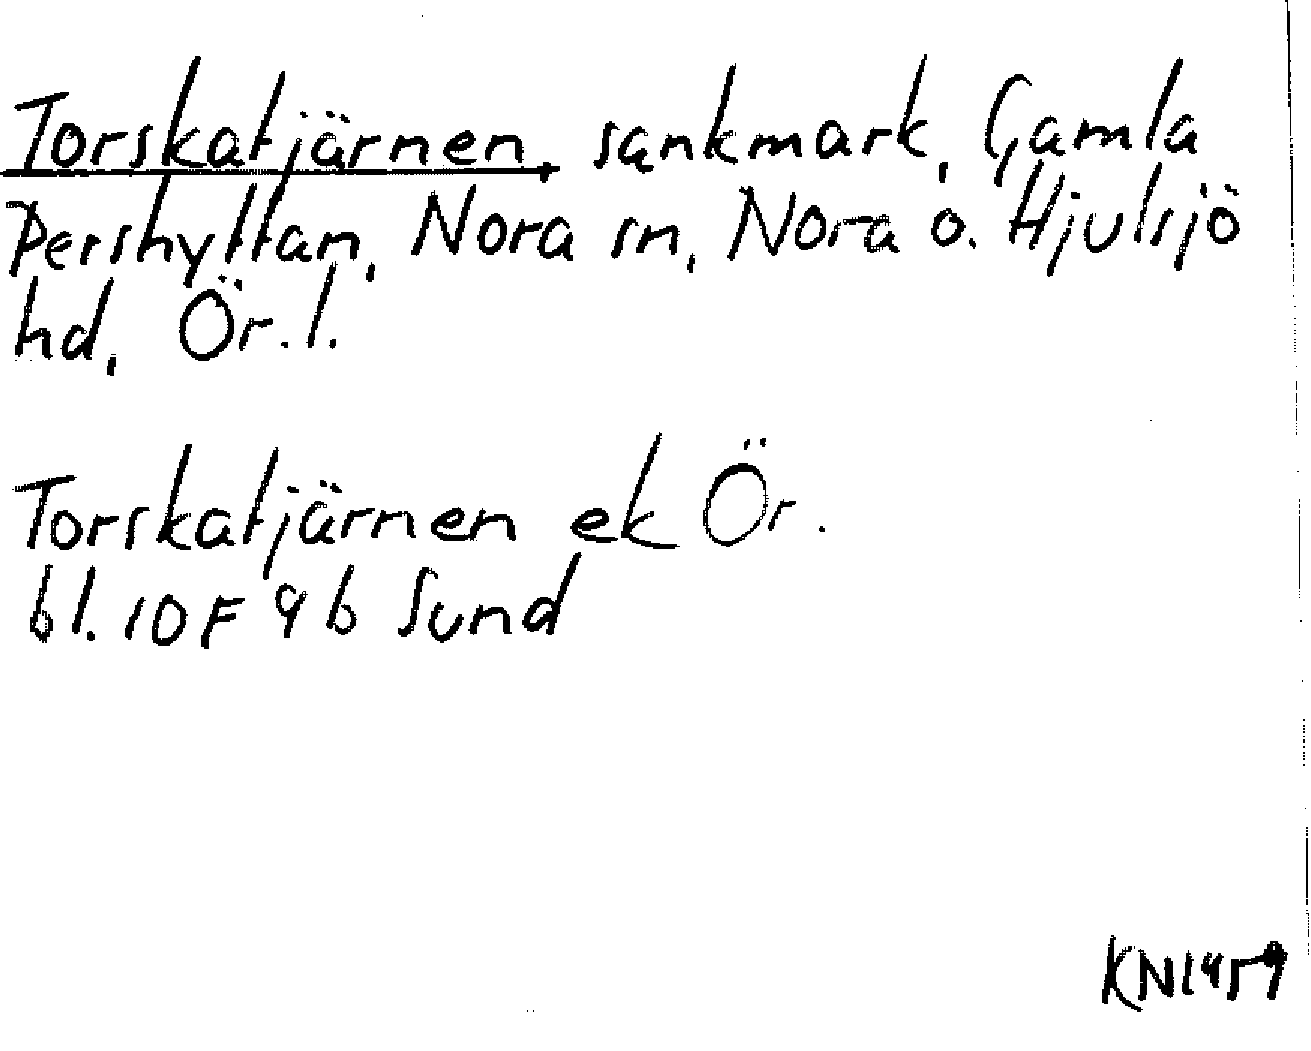 Torskatjärnen, sankmark, Gamla
Pershyttan, Nora sn, Nora o. Hjulsjö
hd, Ör. l.
Torskatjärnen ek Ör.
bl. 10F 9b Sund
KN1959